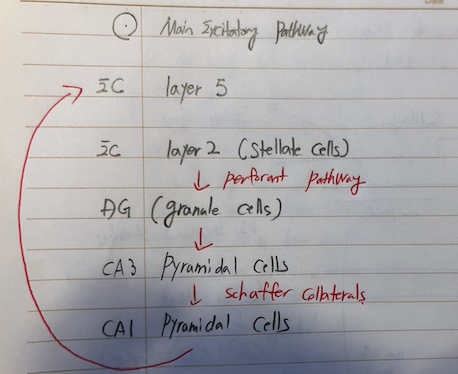 Main Excitatory Pathway
EC layer 5
EC layer 2 (Stellate Cells)
↓ perforant pathway
DG (granale cells)
↓
CA3 Pyramidal Cells
↓ schaffer collaterals
CA1 Pyramidal Cells